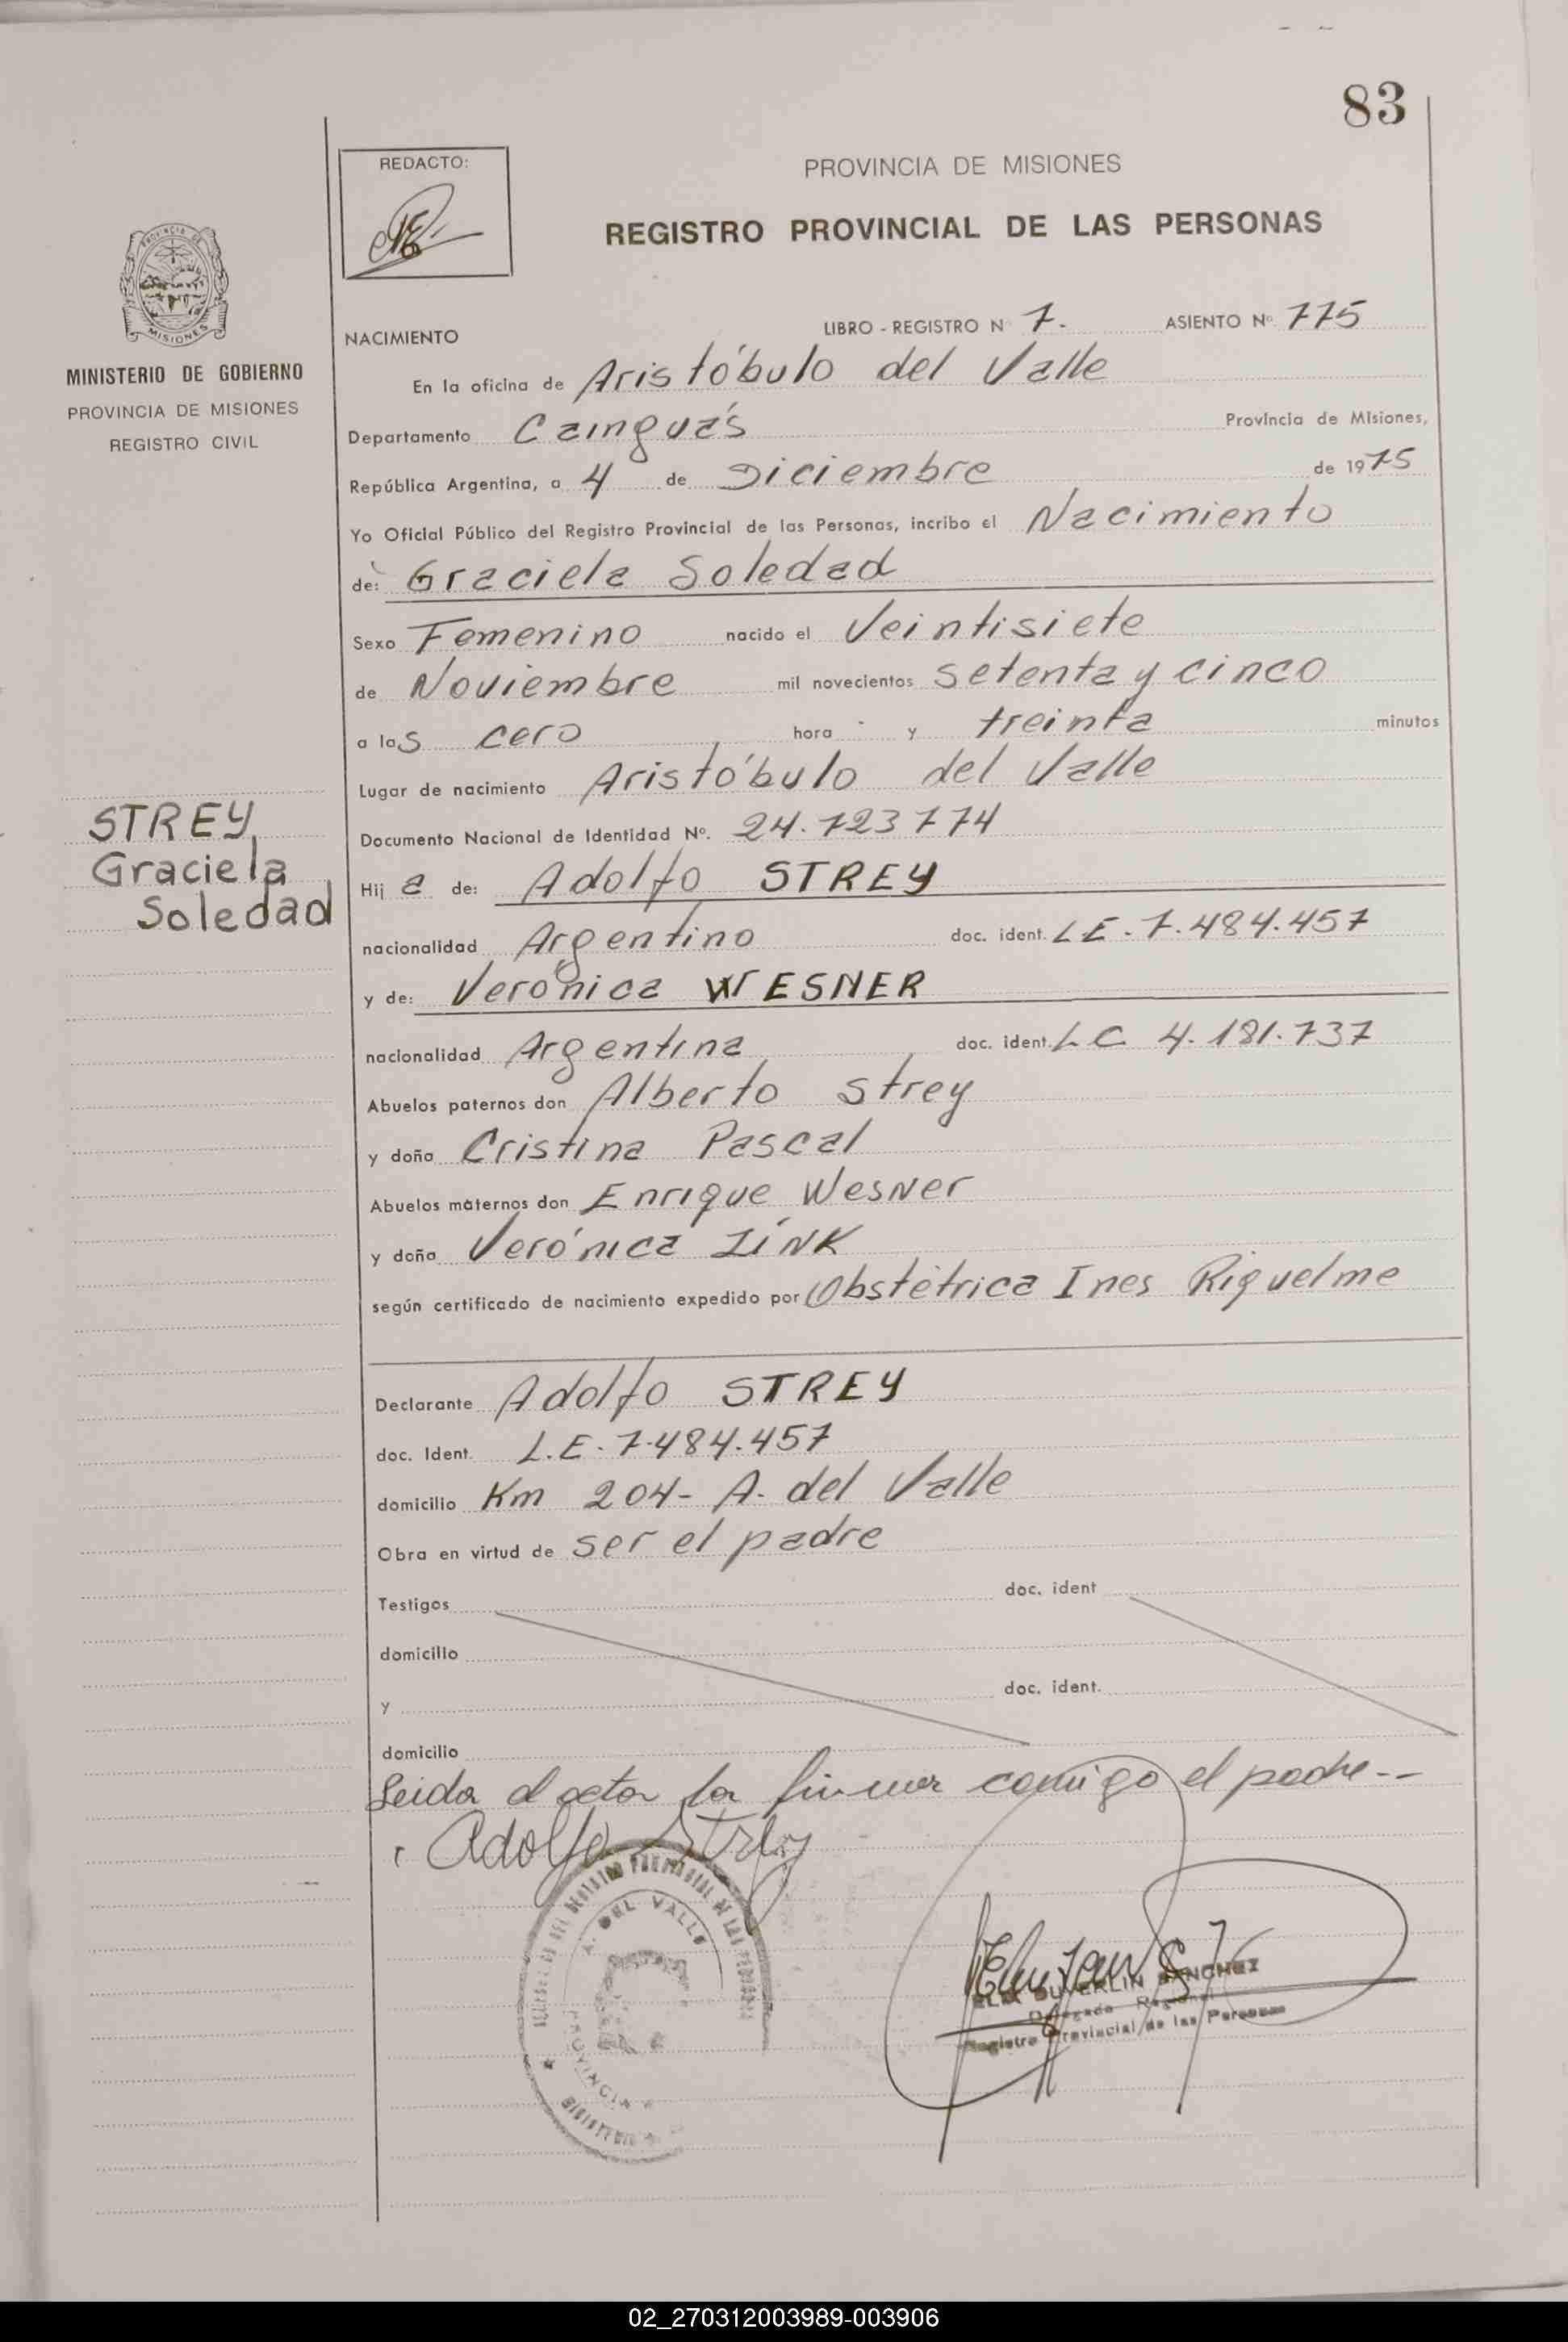 83
REDACTO:
PROVINCIA DE MISIONES
REGISTRO PROVINCIAL DE LAS PERSONAS
PROVINCIA DE
MISIONES
MINISTERIO DE GOBIERNO
PROVINCIA DE MISIONES
REGISTRO CIVIL
NACIMIENTO LIBRO - REGISTRO N° 7. ASIENTO N° 775
En la oficina de Aristóbulo del Valle
Departamento Cainguás Provincia de Misiones,
República Argentina, a 4 de Diciembre de 1975
Yo Oficial Público del Registro Provincial de las Personas, incribo el Nacimiento
de: Graciela Soledad
Sexo Femenino nacido el Veintisiete
de Noviembre mil novecientos setenta y cinco
a las cero hora y treinta minutos
Lugar de nacimiento Aristóbulo del Valle
Documento Nacional de Identidad N°. 24.723774
STREY,
Graciela
Soledad
Hij a de: Adolfo STREY
nacionalidad Argentino doc. ident. LE-7.484.457
y de: Verónica WESNER
nacionalidad Argentina doc. ident. LC 4.181.737
Abuelos paternos don Alberto Strey
y doña Cristina Pascal
Abuelos maternos don Enrique Wesner
y doña Verónica ZíNK
según certificado de nacimiento expedido por Obstétrica Ines Riquelme
Declarante Adolfo STREY
doc. Ident. L.E-7.484.457
domicilio Km 204- A. del Valle
Obra en virtud de ser el padre
Testigos doc. ident
domicilio
y doc. ident.
domicilio
Leida el acta la firma comigo el padre--
Adolfo Strey
A. DEL VALLE
PROVINCIA
DUVERLIN SANCHEZ
Delegado Regional
Registro Provincial de las Personas
02_270312003989-003906